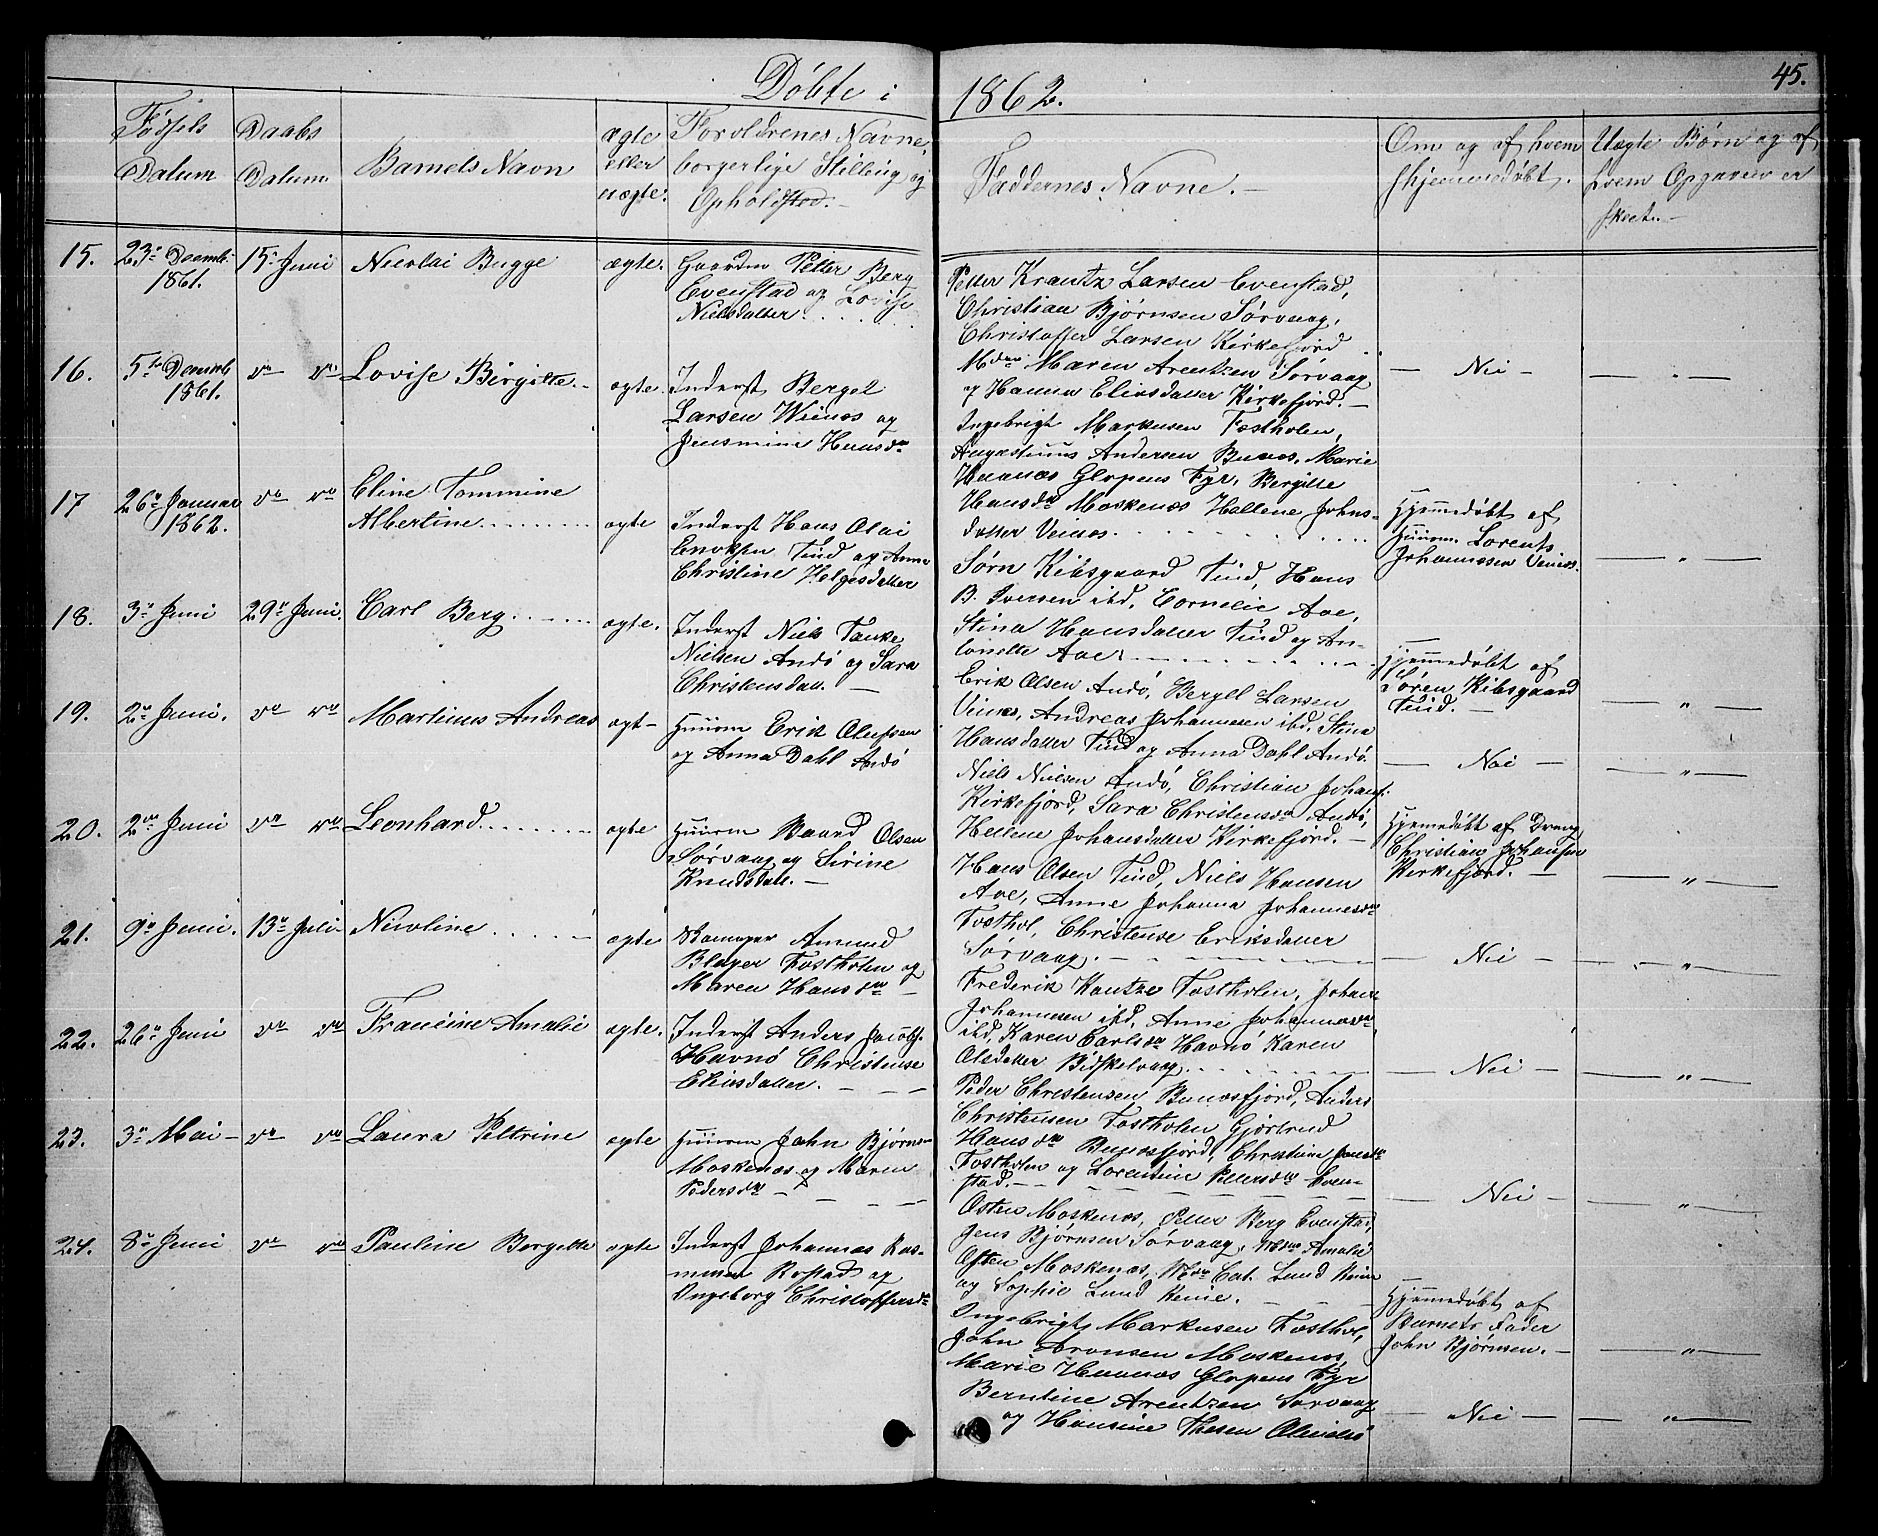 Döbte i 1862.
45.
Fødsels Datum
Daabs Datum
Barnets Navn
ægte eller uægte.
Forældrenes Navne, borgerlige Stilling og Opholdsted.
Faddernes Navne.
Om og af hvem hjemmedøbt.
Uægte Børn og af hvem Opgaven er skeet.
15. 23de Decemb. 1861. 15de Juni Nicolai Bugge ægte. Gaardm Petter Berg
Evenstad og Lovise
Nielsdatter.
Petter Krantz Larsen Evenstad,
Christian Bjørnsen Sørvaag,
Christoffer Larsen Kirkefjord
Mdm Maren Arentzen Sørvaag
og Hanna Eliasdatter Kirkefjord.
— Nei —
— " —
16. 5te Decemb 1861. do do Lovise Birgitte ægte. Inderst Bergel
Larsen Veines og
Jensmine Hansdr
Ingebrigt Markusen Fostholen,
Augustinus Andersen Bunes, Marie
Haanæs Glopens Fyr, Bergitte
Hansdr Moskenæs Hellene Johns-
datter Veines.
Hjemmedøbt af
Huusm. Lorents
Johannessen Veines.
— " —
17 26de Januar 1862. do do Eline Tommine
Albertine ægte Inderst Hans Olai
Enoksen Tind og Anne
Christine Helgesdatter
Sørn Kibsgaard Tind, Hans
B. Iversen ibd, Cornelie Aae,
Stina Hansdatter Tind og An-
tonette Aae
Hjemmedøbt af
Søren Kibsgaard
Tind.
— " —
18. 3de Juni 29de Juni. Carl Berg ægte. Inderst Niels Tanke
Nielsen Andö og Sara
Christensdatt.
Erik Olsen Andö, Bergel Larsen
Veines, Andreas Johannesen ibd, Stina
Hansdatter Tind og Anna Dahl Andö.
— Nei —
— " —
19. 2de Juni. do do Martinus Andreas ægt Huusm Erik Olufsen
og Anna Dahl Andö
Niels Nielsen Andö, Christian Johans.
Kirkefjord, Sara Christensdr Andö,
Hellene Johansdatter Kirkefjord.
Hjemmedøbt af Dreng
Christian Johansen
Kirkefjord.
— " —
20. 2den Juni do do Leonhard ægte Huusm Baard Olsen
Sørvaag og Sirine
Knudsdatt.
Hans Olsen Tind, Niels Hansen
Aae, Anne Johanna Johannesdr
Fosthol, Christense Eriksdatter
Sørvaag.
— Nei —
— " —
21. 9de Juni. 13de Juli Nicoline ægte Amund
Blager Fostholen og
Maren Hansdr
Frederik Kantze Fostholen, Johan
Johannesen ibd, Anne Johannesdr
ibd, Karen Carlsdr Havnö Karen
Olsdatter
— Nei —
— " —
22. 26de Juni do do Francine Amalie ægte. Inderst Anders Jacobs.
Havnö Christense
Eliasdatter.
Peder Christensen Bunesfjord, Anders
Christensen Fostholen Gjertrud
Hansdr Bunesfjord, Christine Jonsdr
Fostholen og Lorentine Pettersdr Even-
stad.
— Nei —
— " —
23. 3de Mai do do Laura Peltrine ægte Huusm John Bjørnsen
Moskenæs og Maren
Pedersdr
Osten Moskenæs, Petter Berg Evenstad,
Jens Bjørnsen Sørvaag, Mdm Amalie
Osten Moskenæs, Mdm Cat. Lund Reine
og Sophie Lund Reine.
Hjemmedøbt af
Barnets Fader
John Bjørnsen.
— " —
24. 8de Juni do do Pauline Bergitte ægte Inderst Johannes Ras-
mussen Rostad og
Ingeborg Christoffersdr
Ingebrigt Markusen Fosthol,
John Aronsen Moskenæs
Marie Haanæs Glopens Fyr
Berntine Arentzen Sørvaag
og Hansine Thesen Olenilsö
— Nei —
— " —